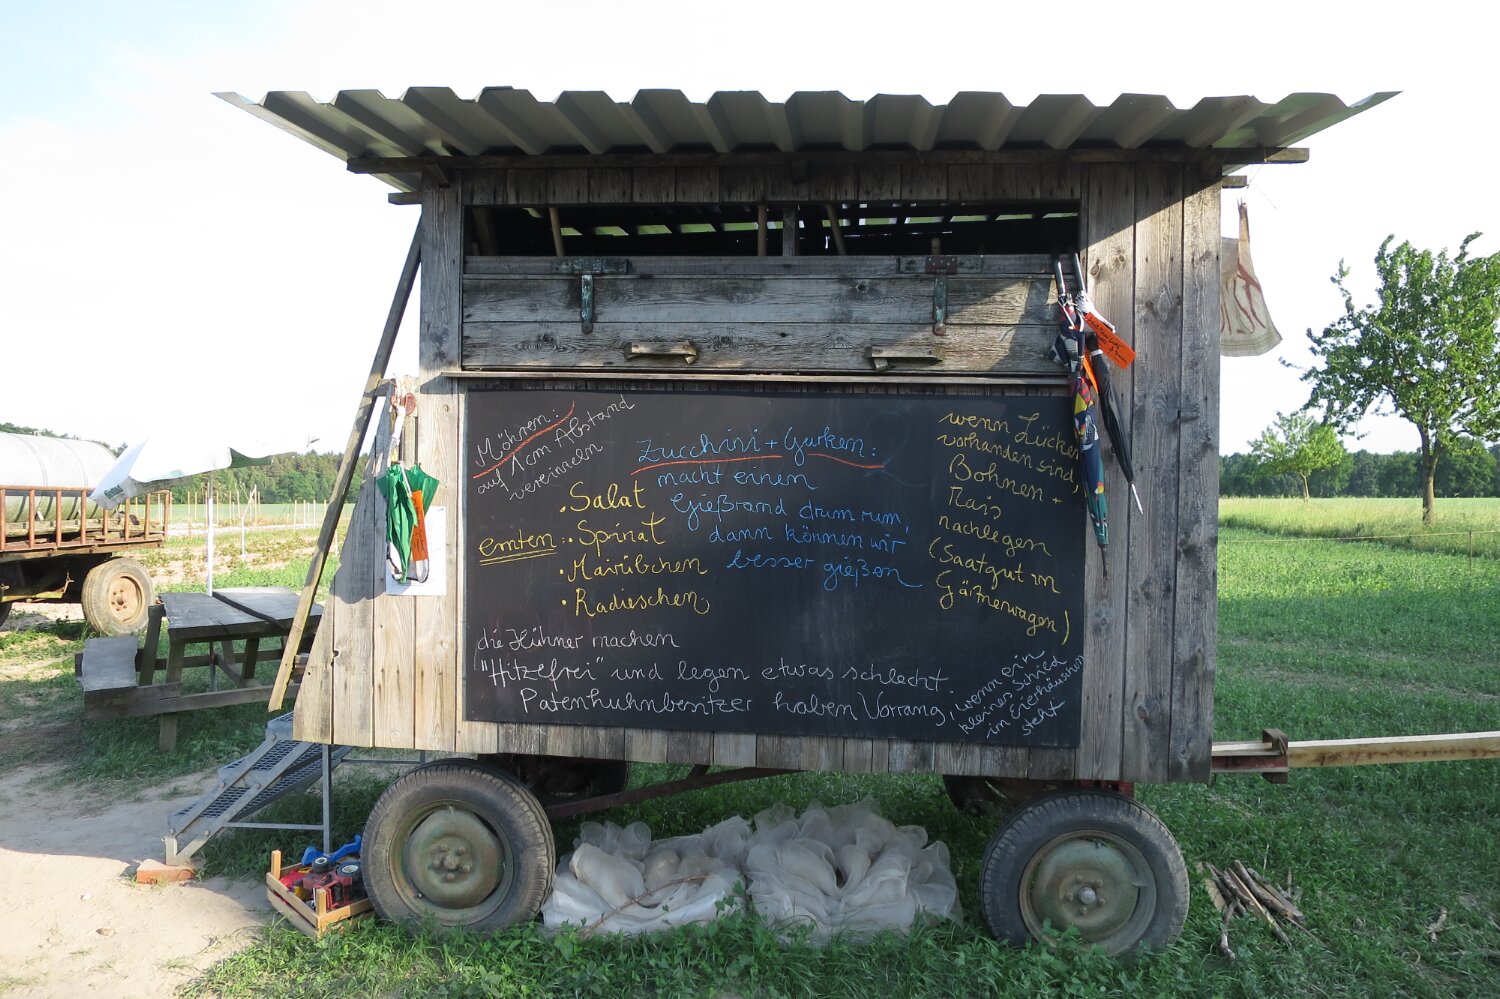 Möhren:
auf 1cm Abstand
vereinzeln
Zucchini + Gurken:
macht einen
Gießrand drum rum,
dann können wir
besser gießen
wenn Lücken
vorhanden sind,
Bohnen +
Mais
nachlegen
(Saatgut im
Gärtnerwagen)
ernten:
• Salat
• Spinat
• Mairübchen
• Radieschen
die Hühner machen
"Hitzefrei" und legen etwas schlecht,
Patenhuhnbesitzer haben Vorrang,
wenn ein
kleines Schild
im Eierhäuschen
steht